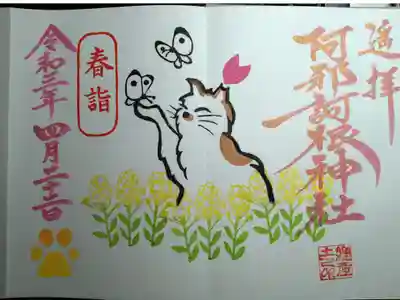 遥拝
阿邪訶根神社
春詣
令和三年 四月二十二日